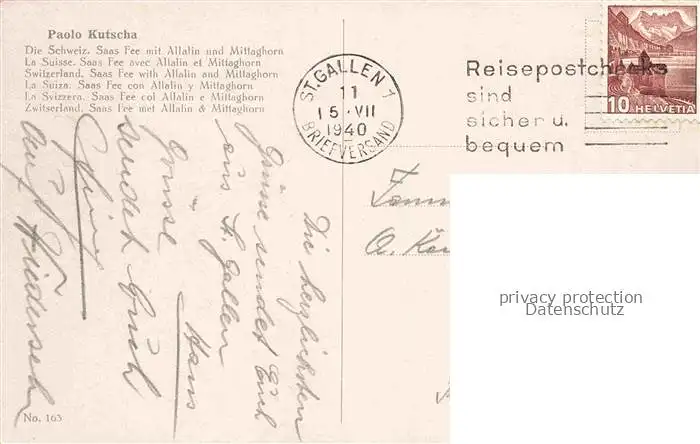 Paolo Kutscha
Die Schweiz. Saas Fee mit Allalin und Mittaghorn
La Suisse. Saas Fee avec Allalin et Mittaghorn
Switzerland. Saas Fee with Allalin and Mittaghorn
La Suiza. Saas Fee con Allalin y Mittaghorn
La Svizzera. Saas Fee col Allalin e Mittaghorn
Zwitserland. Saas Fee met Allalin & Mittaghorn
ST. GALLEN 1
11
15·VII
1940
BRIEFVERSAND
Reisepostchecks
sind
sicher u.
bequem
10 HELVETIA
Die herzlichsten
Grüsse sendet Euch
aus St. Gallen
Hans
Grüsse
sendet Euch
Auf Wiedersehn
privacy protection
Datenschutz
No. 163